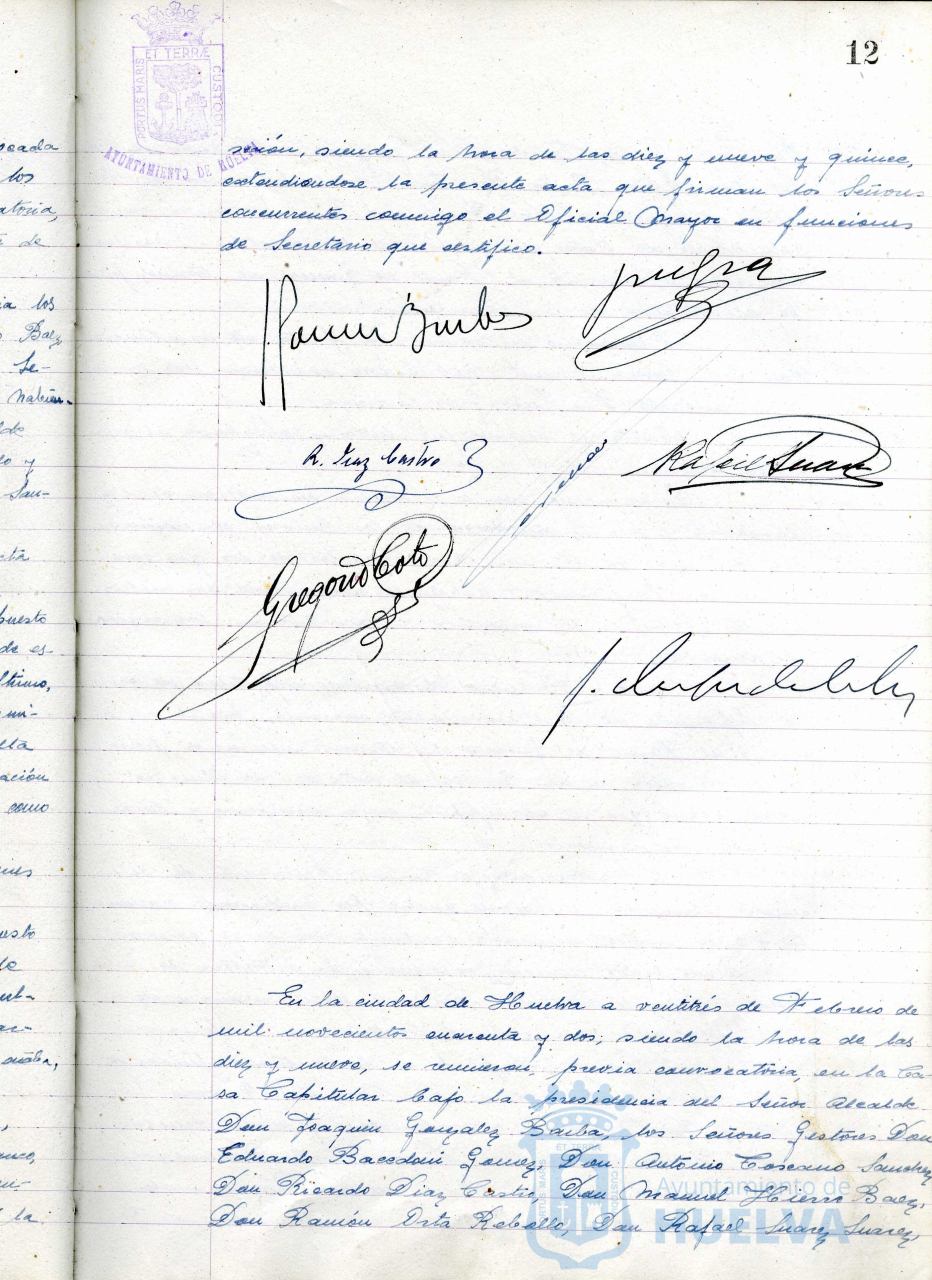 12
ET TERRÆ
PORTUS MARIS
CUSTODIA
AYUNTAMIENTO DE HUELVA
sesión, siendo la hora de las diez y nueve y quince,
extendiéndose la presente acta que firman los Señores
concurrentes conmigo el Oficial Mayor en funciones
de Secretario que certifico.
R. Diaz Castro
Rafael Suarez
Gregorio Coto
En la ciudad de Huelva a ventitrés de Febrero de
mil novecientos cuarenta y dos; siendo la hora de las
diez y nueve, se reunieron, previa convocatoria, en la Ca-
sa Capitular bajo la presidencia del Señor Alcalde
Don Joaquin Gonzalez Barba, los Señores Gestores Don
Eduardo Gomez, Don Antonio Toscano Sanchez,
Don Ricardo Diaz Castro, Don Manuel Hierro Baez,
Don Ramón Orta Rebollo, Don Rafael Suarez Suarez,
Ayuntamiento de
HUELVA
los
de
los
Baez
Se-
y
San-
puesto
mi-
ación
como
la